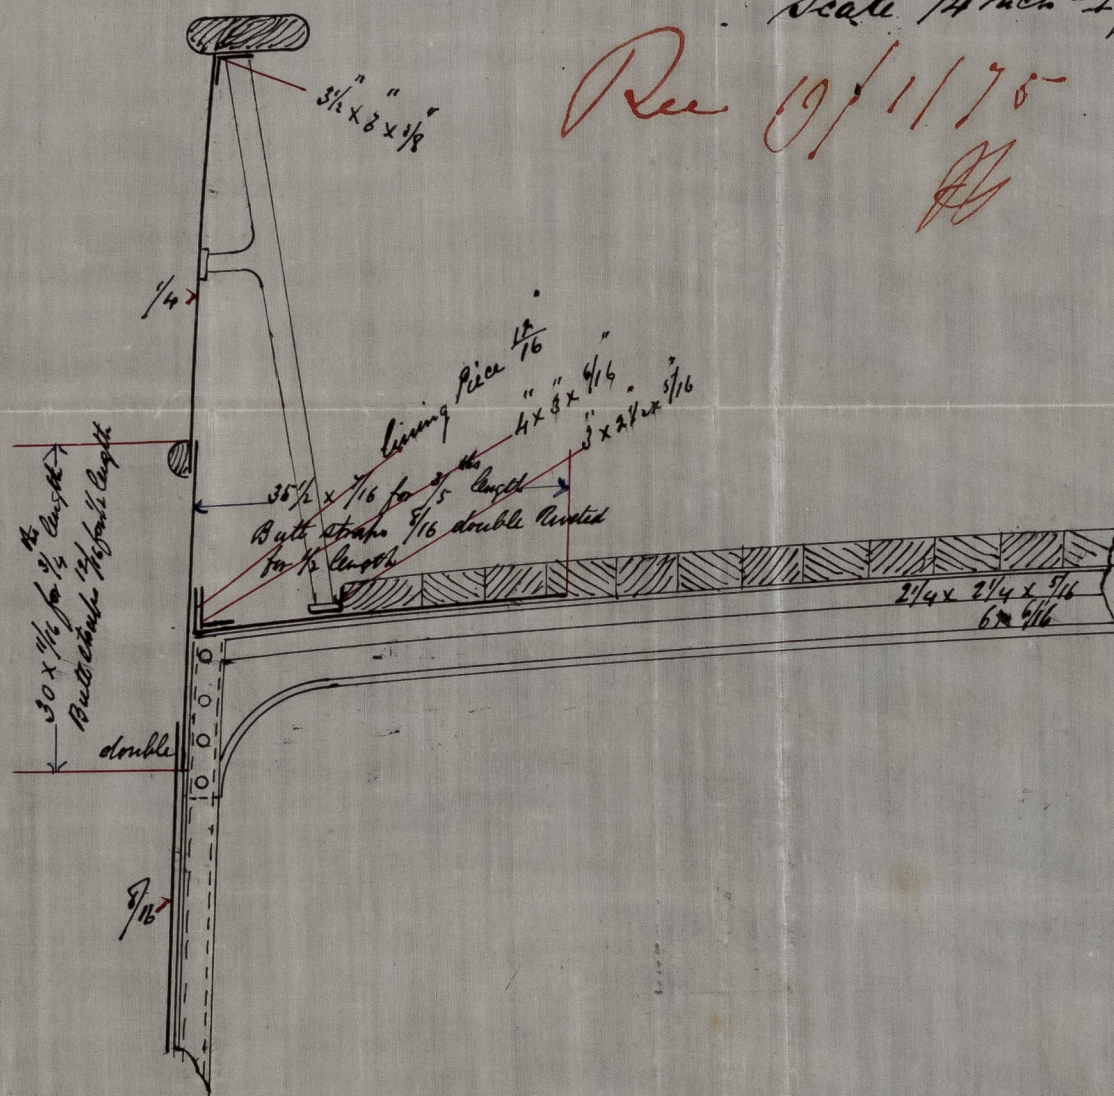 Scale 1/4 inch =
Rec 19/1/75
3 1/2" x 3" x 3/8"
1/4
lining Piece 12/16"
4" x 3" x 6/16"
3" x 2 1/2" x 5/16"
35 1/2 x 7/16 for 3/5 ths length
Butt straps 8/16 double Riveted
for 1/2 length
30 x 11/16 for 3/4 ths length
Butt straps 12/16 for 1/2 length
2 1/4 x 2 1/4 x 5/16
6 x 6/16
double
8/16